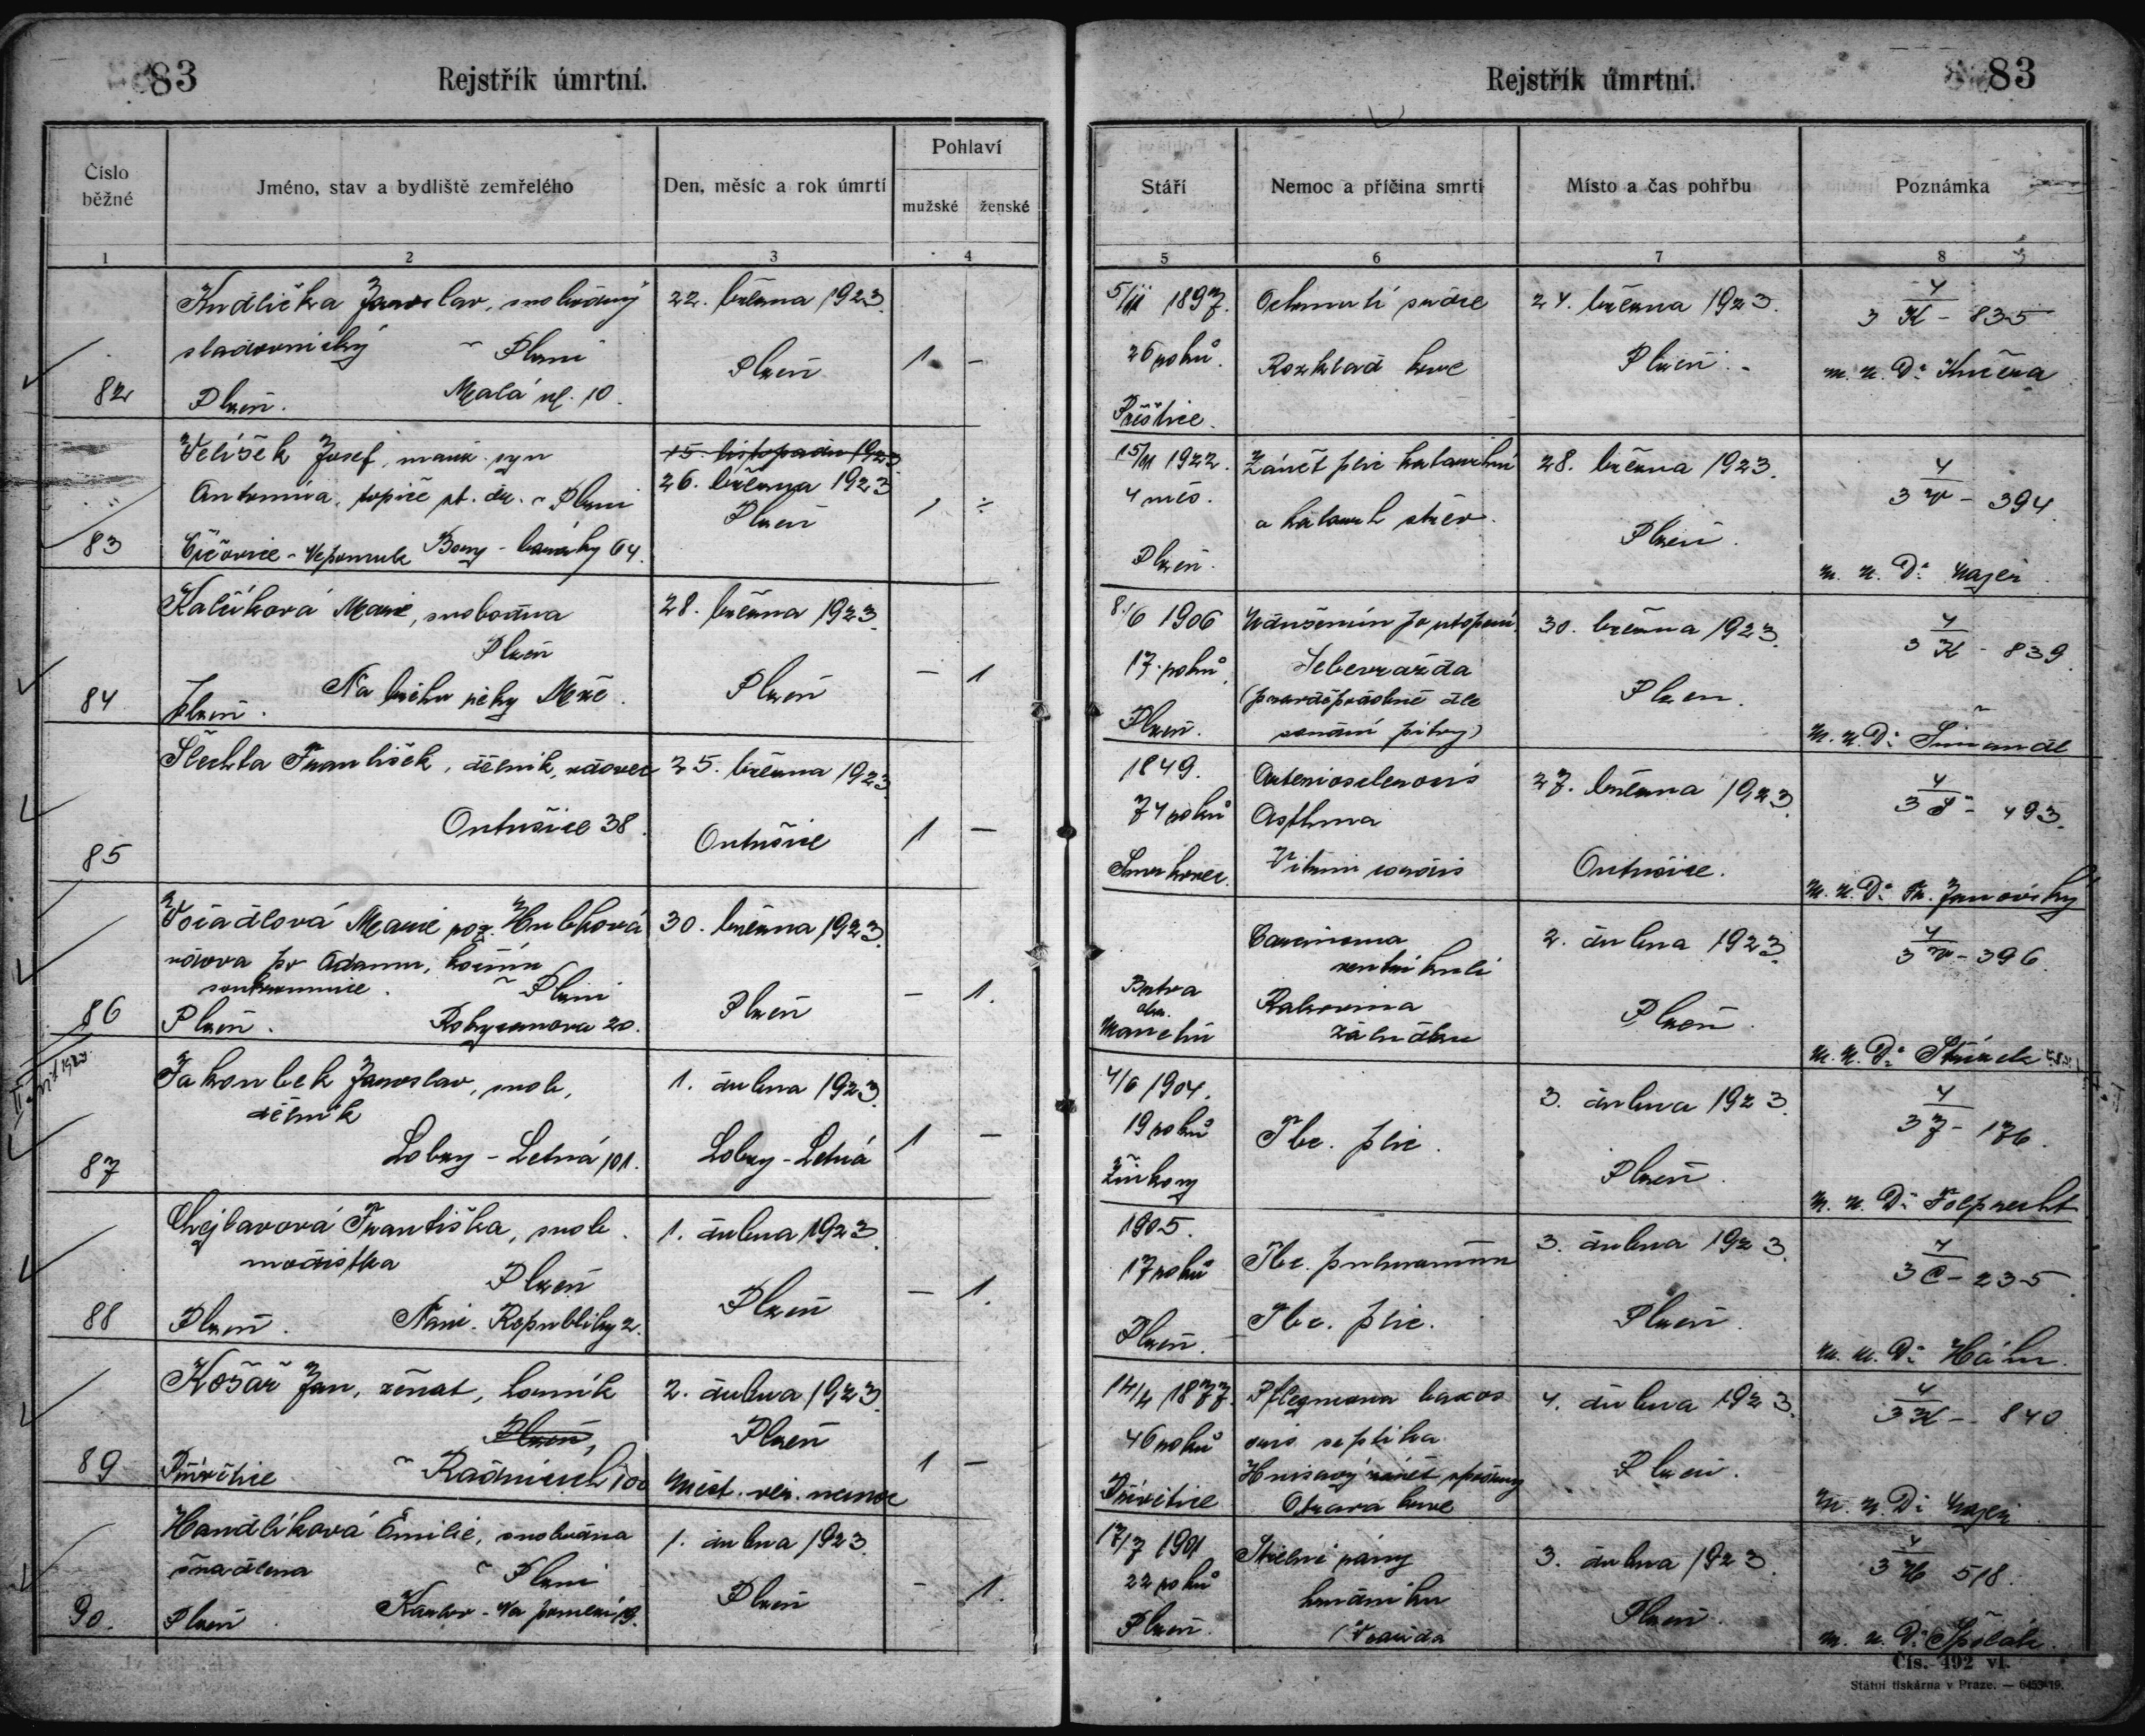 83
Rejstřík úmrtní.
Číslo běžné
Jméno, stav a bydliště zemřelého
Den, měsíc a rok úmrtí
Pohlaví
mužské
ženské
1
2
3
4
Kudlička Jaroslav, svobodný
sladovnický v Plzni
Malá ul. 10.
82
Plzeň.
22. března 1923.
Plzeň
1
–
Velíšek Josef, manž. syn
Antonína, topiče st. dr. v Plzni
83
Čičovice - Nepomuk Bory - baráky 64.
15. listopadu 1923
26. března 1923
Plzeň
Kalíková Marie, svobodna
Plzeň
Na břehu řeky Mže.
84
Plzeň.
28. března 1923.
Plzeň
–
1
Šlechta František, dělník, vdovec
Ontušice 38.
85
25. března 1923.
Ontušice
1
–
Vořádlová Marie roz. Hrubková
vdova po Adamu,
soukromnice. v Plzni
86
Plzeň.
Rokycanova 20.
30. března 1923.
Plzeň
–
1.
Jakoubek Jaroslav, svob.
dělník
Lobzy - Letná 101.
87
1. dubna 1923.
Lobzy - Letná
1
–
Chejlavová Františka, svob.
modistka
Plzeň
88
Plzeň.
Nám. Republiky 2.
1. dubna 1923.
Plzeň
–
1.
Košař Jan, ženat, horník
Plzeň,
89
Přívětice
v Radnicích 100
2. dubna 1923.
Plzeň
Měst. veř. nemoc
1
–
Handlíková Emilie, svobodna
švadlena v Plzni
90.
Plzeň
Karlov - Na pomezí 19.
1. dubna 1923.
Plzeň
–
1.
Rejstřík úmrtní.
83
Stáří
Nemoc a příčina smrti
Místo a čas pohřbu
Poznámka
5
6
7
8
5/II 1897.
26 roků.
Přeštice.
Ochrnutí srdce
Rozklad krve
24. března 1923.
Plzeň.
4
3 K - 835
m. n. Dr Kučera
15/11 1922.
4 měs.
Plzeň.
Zánět plic katarhální
a katarrh střev.
28. března 1923.
Plzeň.
4
3 V - 394.
m. n. Dr Majer
8/6 1906
17 roků.
Plzeň.
Udušením po utopení.
Sebevražda
(pravděpodobně dle
konání pitvy)
30. března 1923.
Plzen.
4
3 K - 839.
m. n. Dr Šimandl
1849.
74 roků
Arteriosclerosis
Asthma
Vitium cordis
27. března 1923.
Ontušice.
4
3 Š - 493.
m. n. Dr Fr. Janovský
Carcinoma
ventriculi
Rakovina
žaludku
2. dubna 1923.
Plzeň.
4
3 V - 396.
m. n. Dr
4/6 1904.
19 roků
Žinkovy
Tbc. plic.
3. dubna 1923.
Plzeň.
4
3 J - 176.
m. n. Dr Folprecht
1905.
17 roků
Plzeň.
Tbc. pulmonum
Tbc. plic.
3. dubna 1923.
Plzeň.
4
3 C - 235
m. n. Dr Háhn.
14/4 1877.
46 roků
Přívětice
Phlegmona
septika
Hnisavý zánět spodiny
Otrava krve
4. dubna 1923.
Plzeň.
4
3 K - 840
m. n. Dr Majer
17/7 1901
22 roků
Plzeň.
Střelné rány
hrudníku
Vražda
3. dubna 1923.
Plzeň.
4
3 H 518.
m. n. Dr Špelák.
Čís. 492 vl.
Státní tiskárna v Praze. — 6453-19.